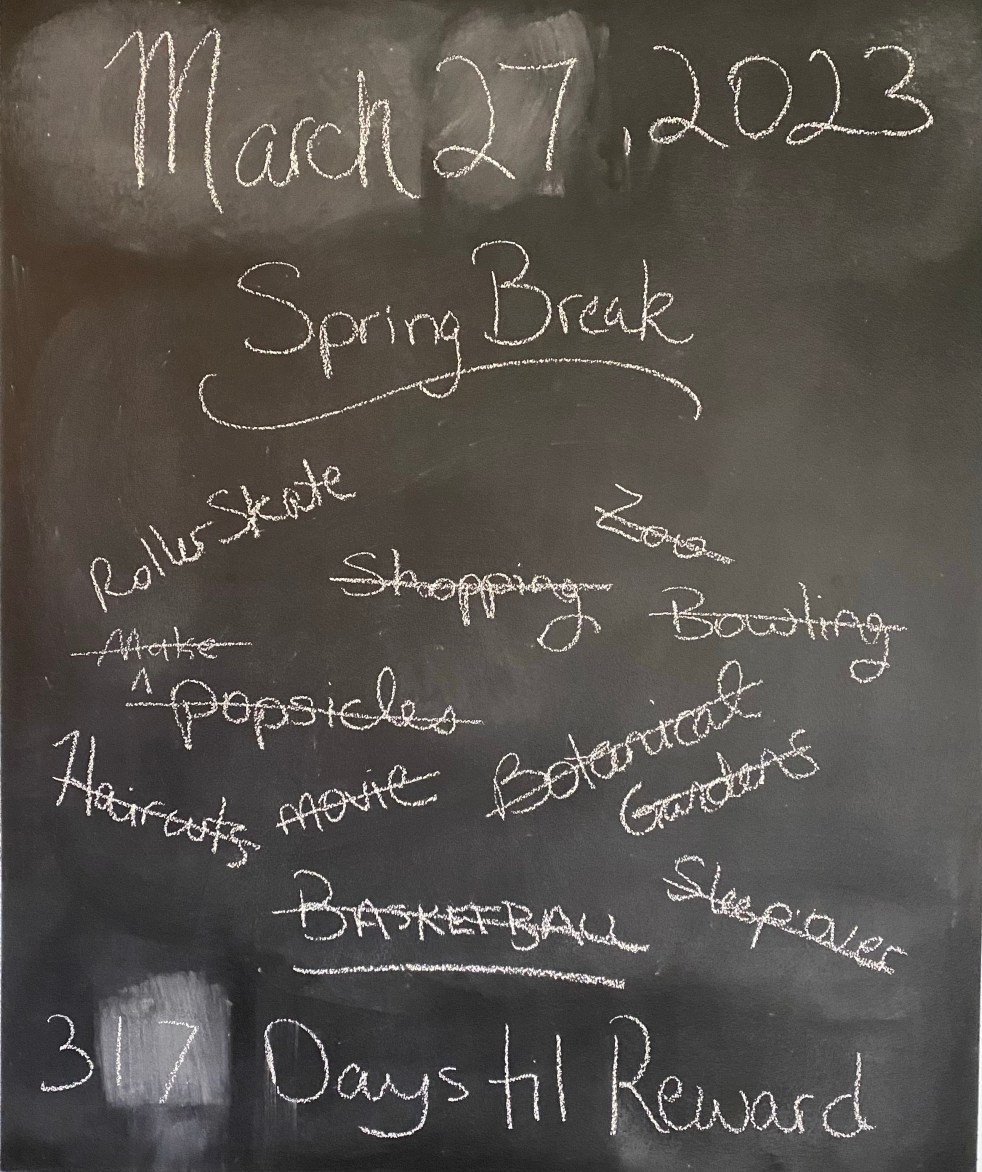 March 27, 2023
Spring Break
Roller Skate
Zoo
Shopping
Bowling
Make
^ popsicles
Botanical
Gardens
Haircuts
movie
BASKETBALL
Sleepover
317 Days til Reward